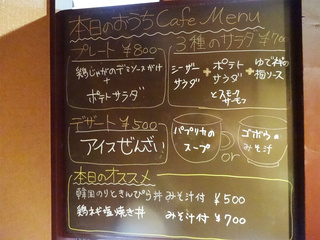 本日のおうちCafe Menu
プレート ¥800
鶏じゃがのデミソースがけ
+
ポテトサラダ
3種のサラダ ¥700
シーザー
サラダ
+
ポテト
サラダ
とスモーク
サーモン
+
ゆで
ソース
デザート ¥500
アイスぜんざい
パプリカの
スープ
or
ゴボウの
みそ汁
本日のオススメ
韓国のりときんぴら丼 みそ汁付 ¥500
鶏ねぎ塩焼き丼 みそ汁付 ¥700